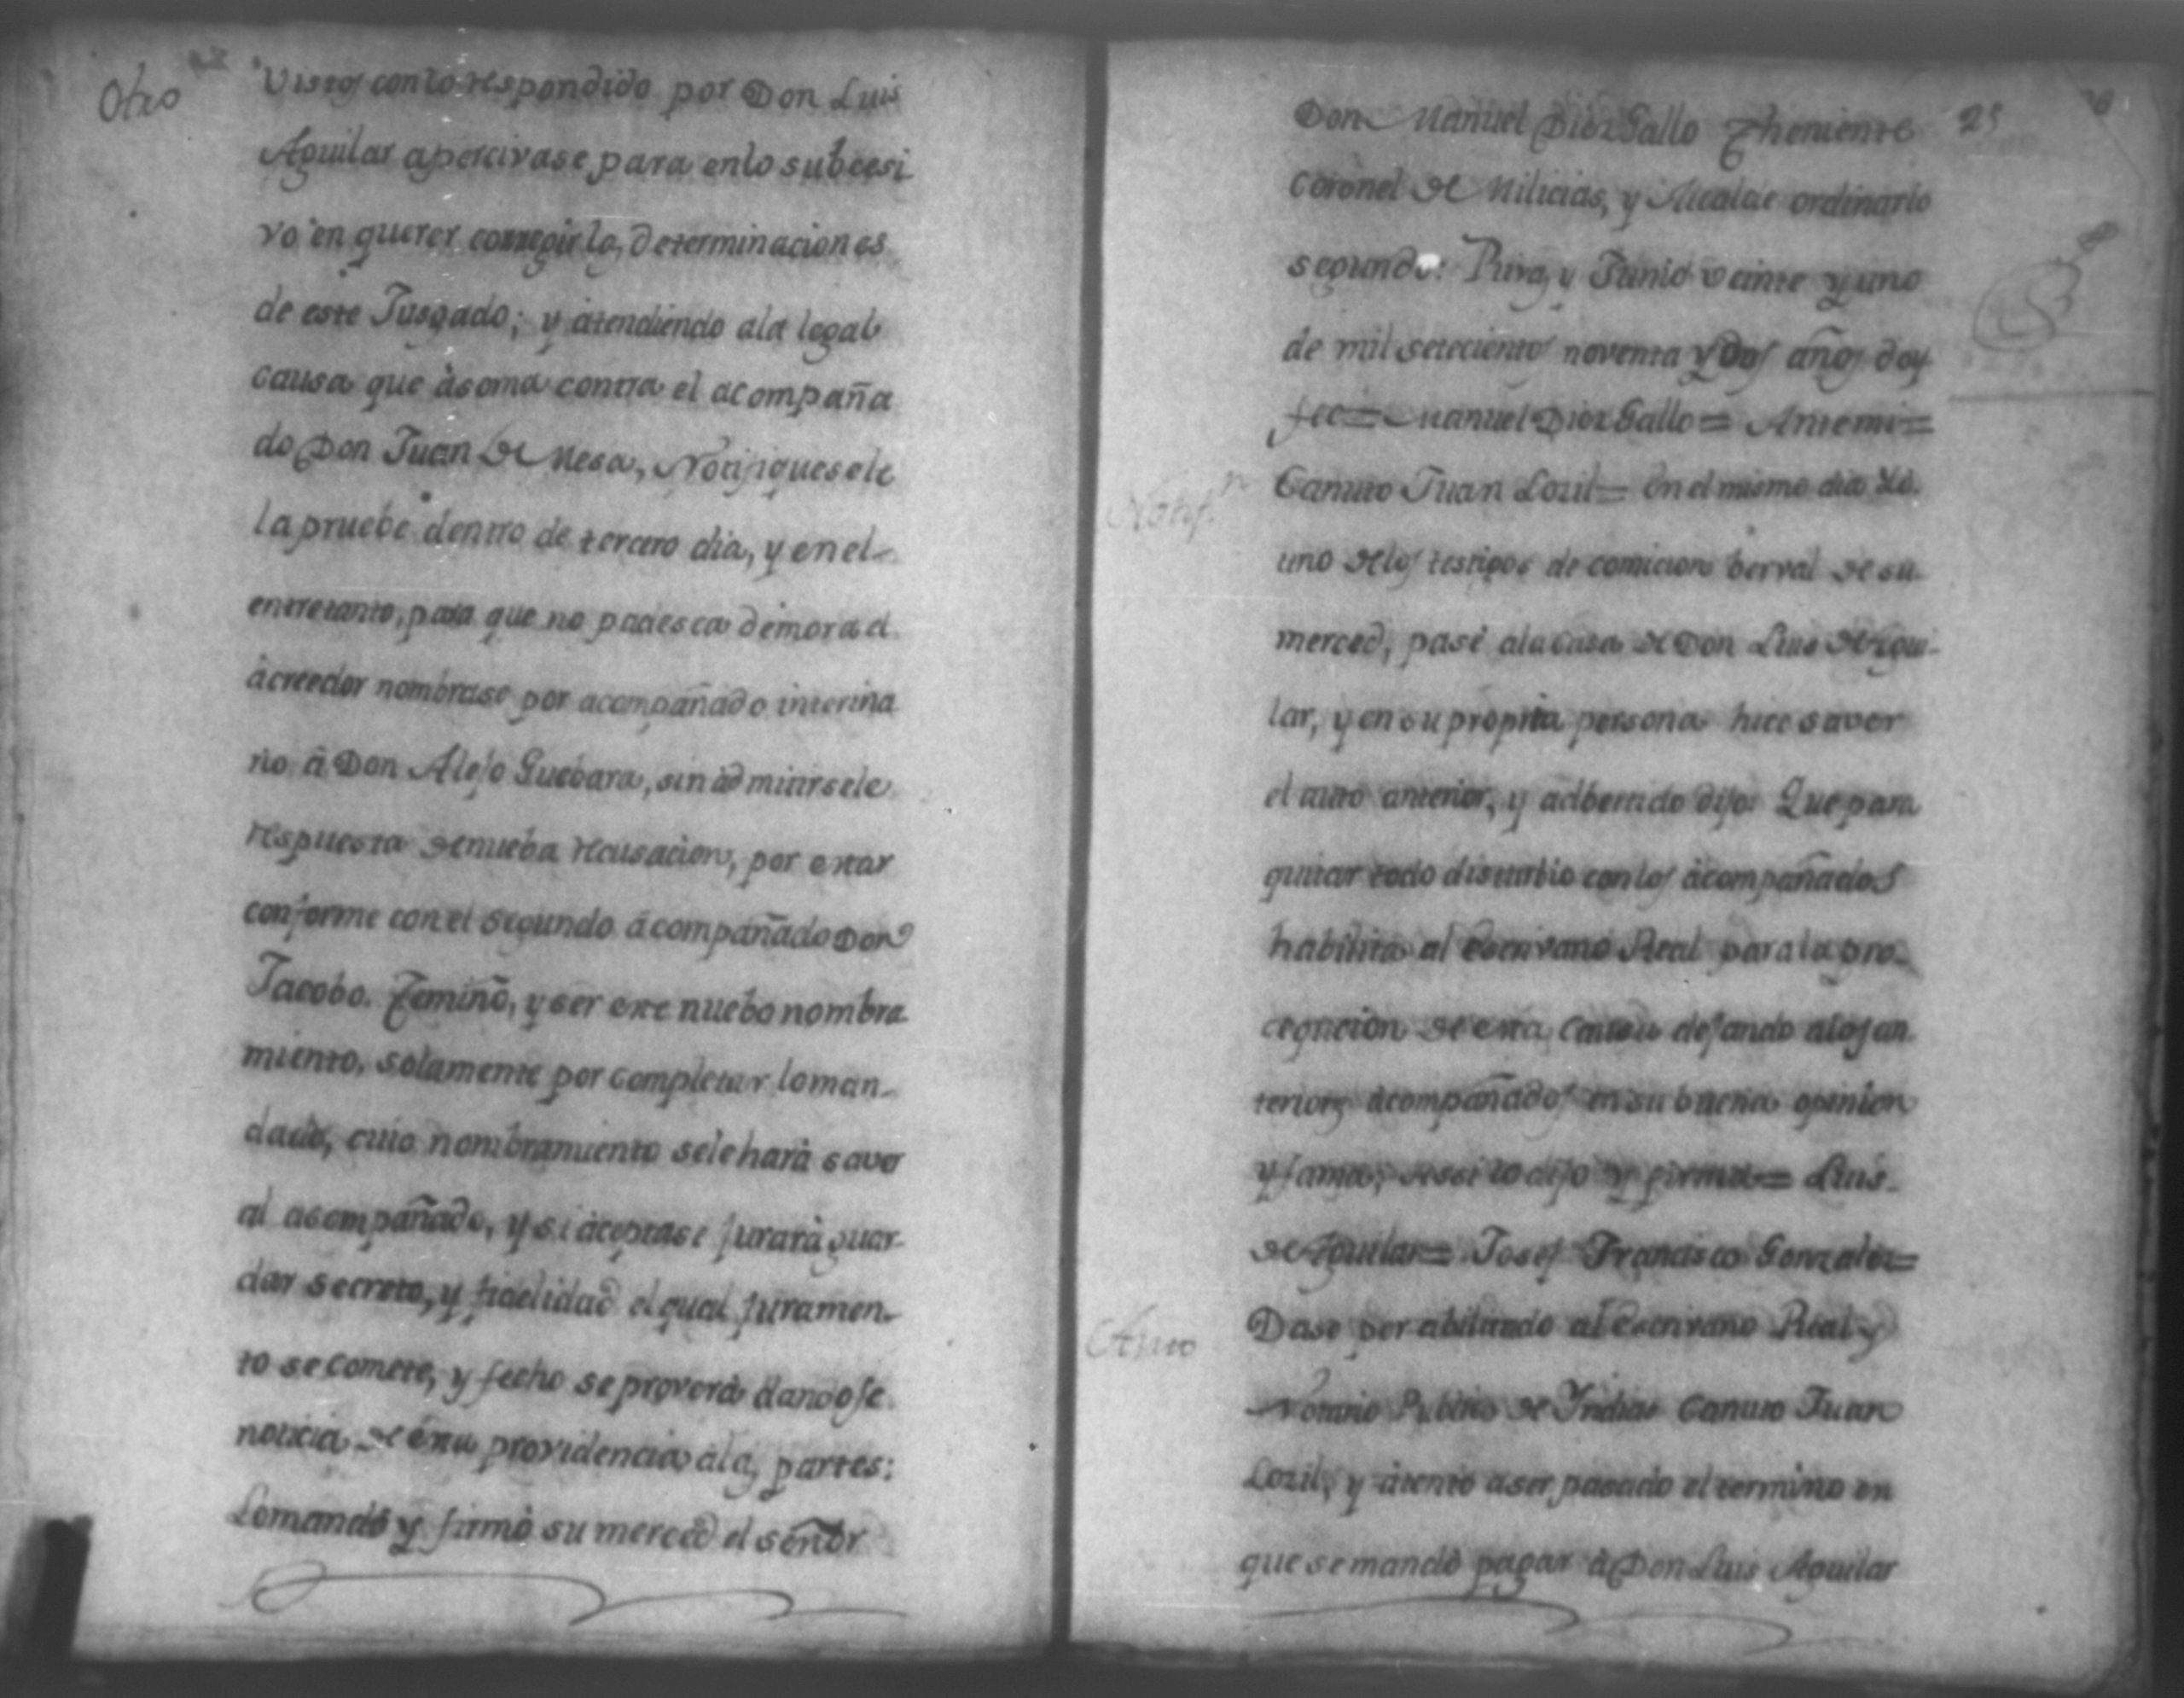 Otro
Vistos con lo respondido por Don Luis
Aguilar apercivase para enlo subcesi
vo en querer corregir las determinaciones
de este Jusgado; y àtendiendo ala legal
causa que àsoma contra el acompaña
do Don Juan de Mesa, Notifiquesele
la pruebe dentro de tercero dia, y en el
entretanto, para que no padesca demora el
àcreedor nombrase por acompañado interina
rio à Don Alejo Guebara, sin àdmitirsele
respuesta de nueba recusacion, por estar
conforme con el segundo àcompañado Don
Jacobo Temiño, y ser este nuebo nombra
miento, solamente por completar loman-
dado, cuio nombramiento sele harà saver
al acompañado, y si àceptase jurarà guar
dar secreto, y fidelidad el qual juramen-
to se comete, y fecho se proverà dandose
noticia de ésta providencia alas partes:
Lomandò y firmò su merced el señor
25
Don Manuel Diez Gallo Theniente
Coronel de Milicias, y Alcalde ordinario
segundo: Piura, y Junio veinte y uno
de mil setecientos noventa y dos años doy
feé = Manuel Diez Gallo = Antemi =
Notif.n
Canuto Juan Lozil = En el mismo dia Yò
uno delos testigos de comicion berval de su
merced, pasé ala casa de Don Luis de Agui-
lar, y en su propria persona hice saver
el auto anterior, y adbertido dijo: Que para
quitar todo disturbio con los àcompañados
habilita al Escrivano Real para la pro-
cequcion de esta causa dejando alos an
teriores àcompañados en su buena opinion
y fama; àssi lo dijo y firmó = Luis
de Aguilar = Josef Francisco Gonzales =
Auto
Dase por abilitado al Escrivano Real y
Notario Publico de Yndias Canuto Juan
Lozil, y àtento a ser pasado el termino en
que se mandò pagar à Don Luis Aguilar